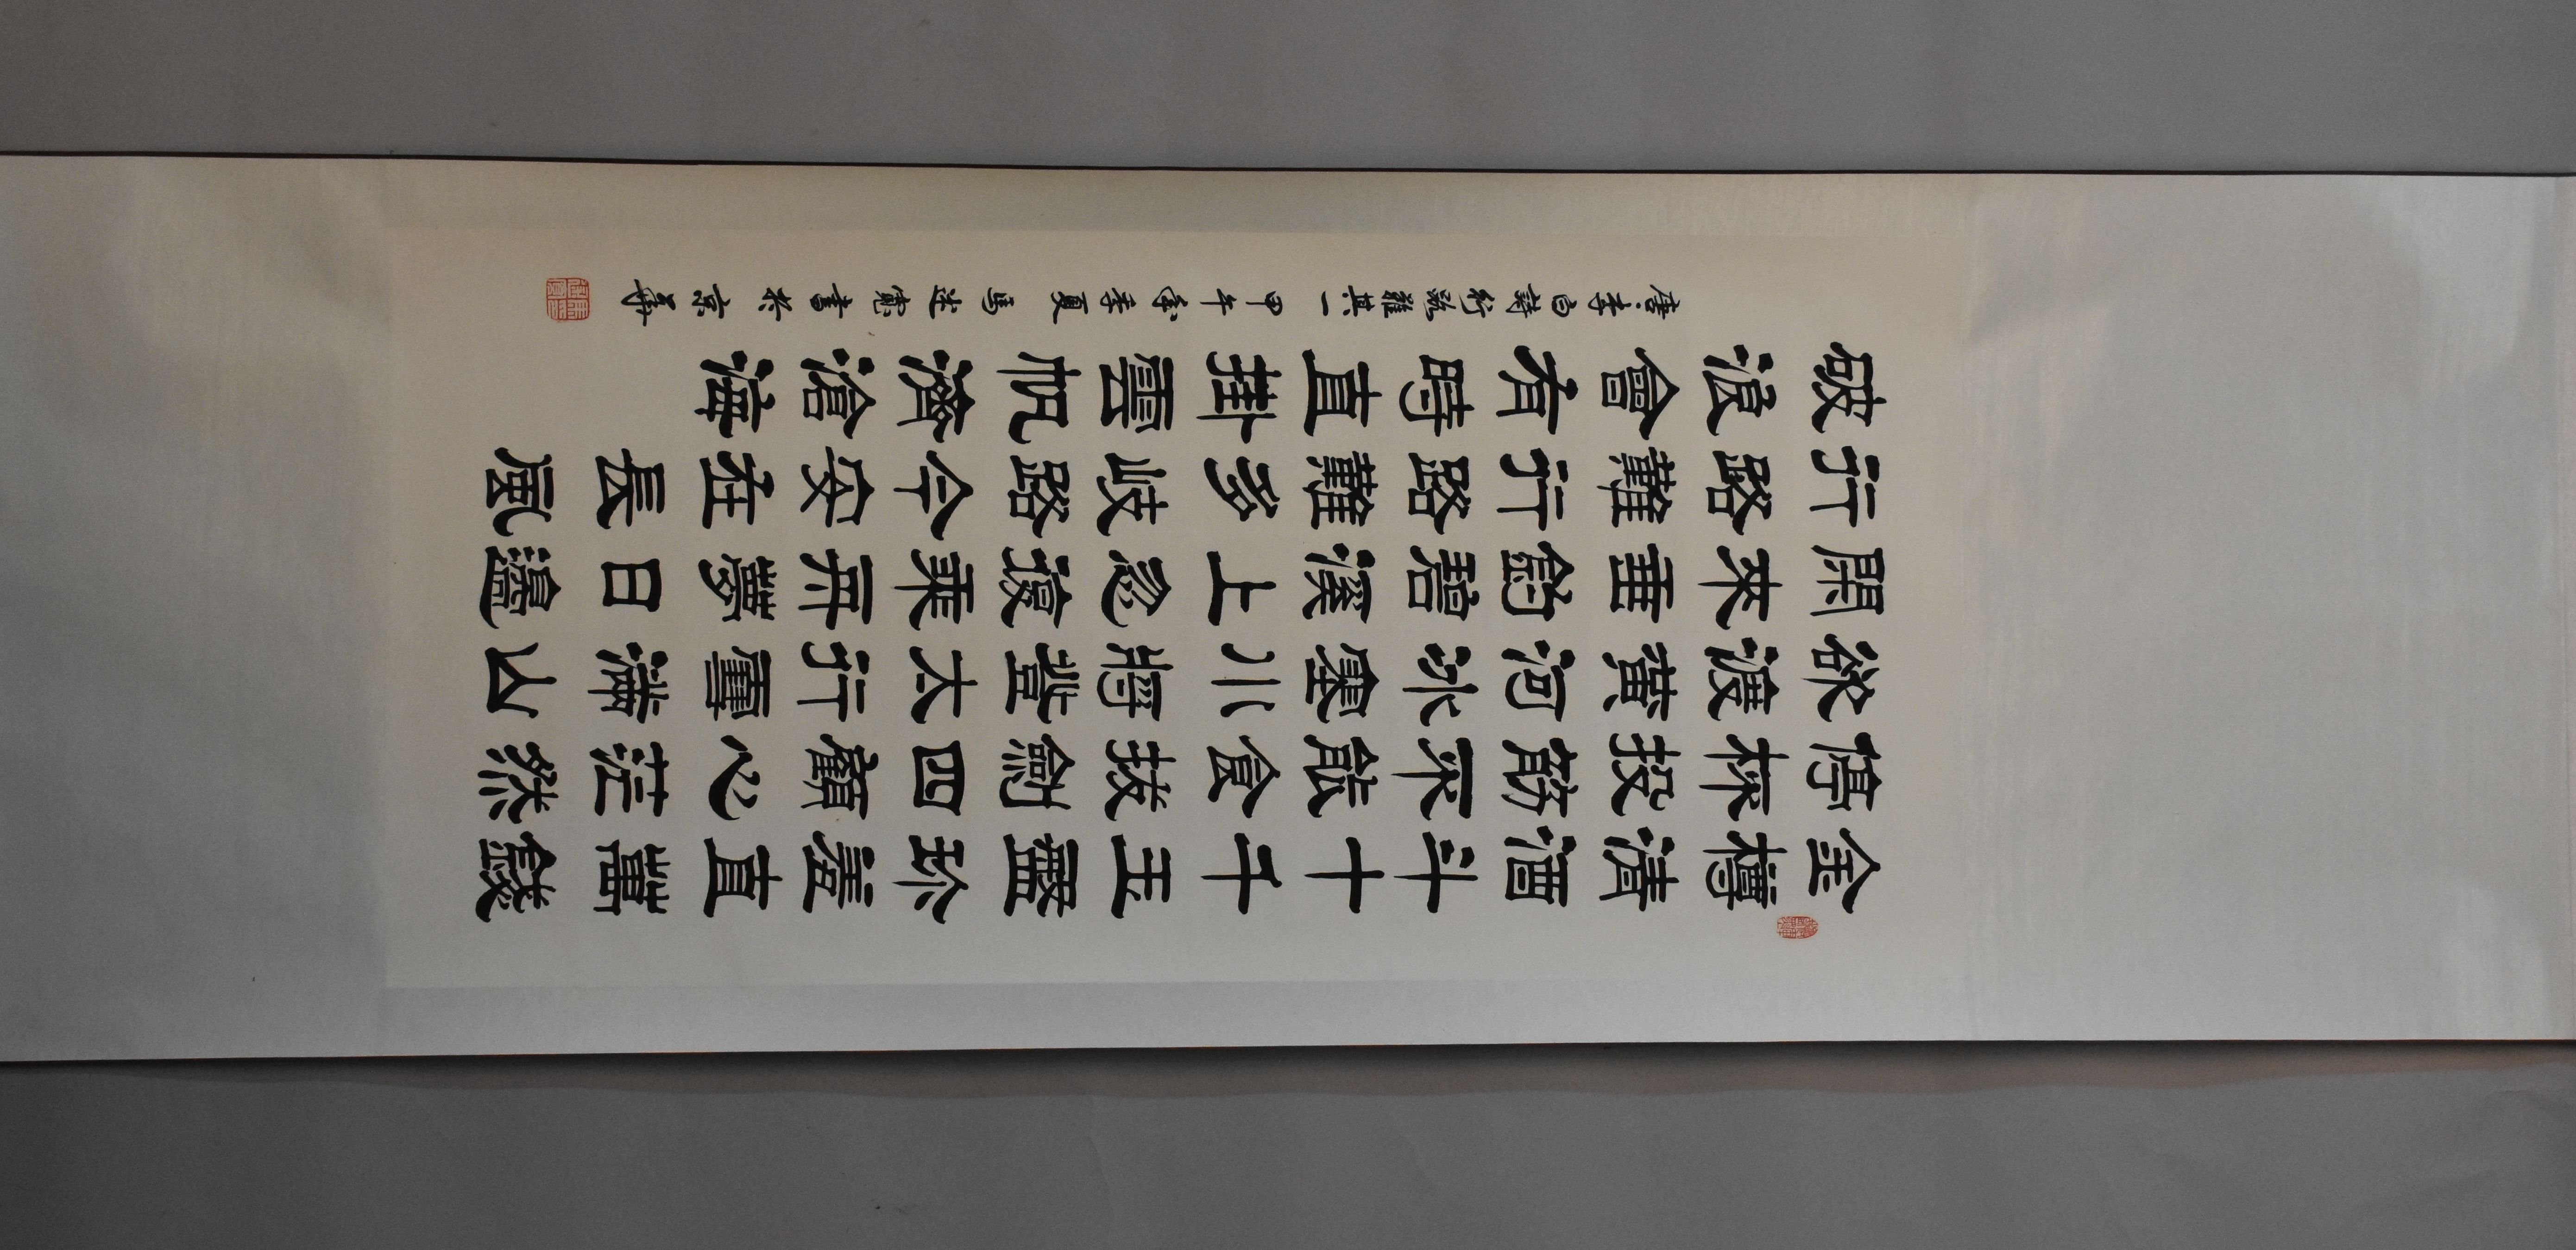 金樽清酒斗十千玉盤珍羞直萬錢
停杯投筯不能食拔劍四顧心茫然
欲渡黃河冰塞川將登太行雪滿山
閑來垂釣碧溪上忽復乘舟夢日邊
行路難行路難多岐路今安在長風
破浪會有時直掛雲帆濟滄海
唐李白詩行路難其一甲午年季夏馬寬書於京華